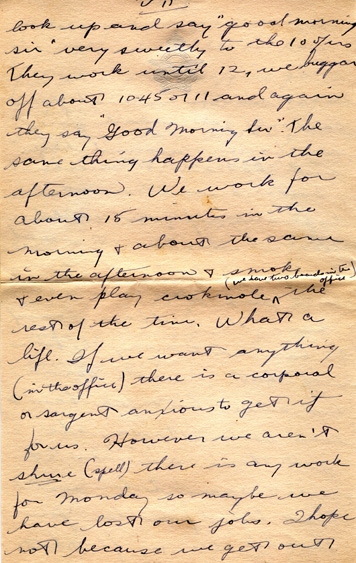 VII
look up and say "good morning
sir" very sweetly to the 10 of us
They work until 12, we buggar
off about 1045 or 11 and again
they say "Good Morning Sir" The
same thing happens in the
afternoon. We work for
about 15 minutes in the
morning & about the same
in the afternoon & smoke
(we have two boards in the office)
& even play crokinole, the
rest of the time. What a
life. If we want anything
(in the office) there is a corporal
or sargent anxious to get it
for us. However we aren't
shure (spell) there is any work
for Monday so maybe we
have lost our jobs. I hope
not because we get out